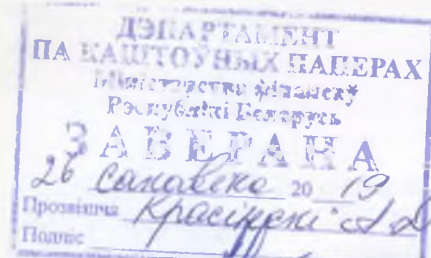 ДЭПАРТАМЕНТ
ПА КАШТОЎНЫХ ПАПЕРАХ
Міністэрства фінансаў
Рэспублікі Беларусь
ЗАВЕРАНА
26 20 19
Прозвішча Красінскі
Подпіс